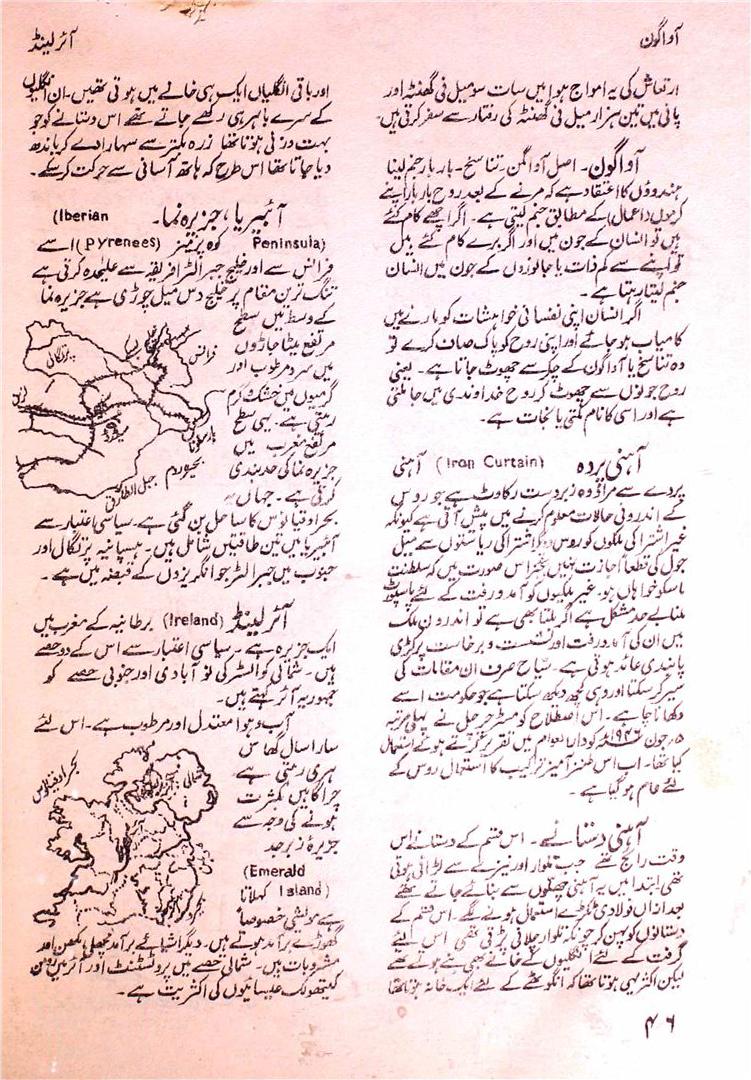 آواگون
آئرلینڈ
ارتعاش کی یہ امواج ہوا میں سات سو میل فی گھنٹہ اور
پانی میں تین ہزار میل فی گھنٹہ کی رفتار سے سفر کرتی ہیں۔
آواگون۔ اصل آواگمن۔ تناسخ۔ بار بار جنم لینا
ہندوؤں کا اعتقاد ہے کہ مرنے کے بعد روح بار بار اپنے
کرموں (اعمال) کے مطابق جنم لیتی ہے۔ اگر اچھے کام کئے
ہیں تو انسان کے جون میں اور اگر برے کام کئے ہیں
تو اپنے سے کم ذات یا جانوروں کے جون میں انسان
جنم لیتا رہتا ہے۔
اگر انسان اپنی نفسانی خواہشات کو مارنے میں
کامیاب ہو جائے اور اپنی روح کو پاک صاف کرے تو
وہ تناسخ یا آواگون کے چکر سے چھوٹ جاتا ہے۔ یعنی
روح جونوں سے چھوٹ کر روح خداوندی میں جا ملتی
ہے اور اسی کا نام مکتی یا نجات ہے۔
آہنی پردہ (Iron Curtain) آہنی
پردے سے مراد وہ زبردست رکاوٹ ہے جو روس
کے اندرونی حالات معلوم کرنے میں پیش آتی ہے کیونکہ
غیر اشتراکی ملکوں کو روس اشتراکی ریاستوں سے میل
جول کی قطعاً اجازت نہیں بجز اس صورت میں کہ سلطنت
ماسکو خواہاں ہو۔ غیر ملکیوں کو آمد و رفت کے لئے پاسپورٹ
ملنا بے حد مشکل ہے اگر ملتا بھی ہے تو اندرون ملک
میں ان کی آمد و رفت اور نشست و برخاست پر کڑی
پابندی عائد ہوتی ہے۔ سیاح صرف ان مقامات کی
سیر کر سکتا اور وہی کچھ دیکھ سکتا ہے جو حکومت اسے
دکھانا چاہے۔ اس اصطلاح کو مسٹر چرچل نے پہلی مرتبہ
جون ۱۹۴۶ء کو دارالعوام میں تقریر کرتے ہوئے استعمال
کیا تھا۔ اب اس طنز آمیز ترکیب کا استعمال روس کے
لئے عام ہو گیا ہے۔
آہنی دستانے۔ اس قسم کے دستانے اس
وقت رائج تھے جب تلوار اور نیزے سے لڑائی ہوتی
تھی ابتدا میں یہ آہنی چھلوں سے بنائے جاتے تھے
بعد ازاں فولادی ٹکڑے استعمال ہونے لگے۔ اس قسم کے
دستانوں کو پہن کر چونکہ تلوار چلانی پڑتی تھی اس لئے
گرفت کے لئے انگلیوں کے خانے بھی بنے ہوتے تھے
لیکن اکثر یہی ہوتا تھا کہ انگوٹھے کے لئے ایک خانہ ہوتا تھا
اور باقی انگلیاں ایک ہی خانے میں ہوتی تھیں۔ ان انگلیوں
کے سرے باہر ہی رکھے جاتے تھے اس دستانے کو جو
بہت وزنی ہوتا تھا زرہ بکتر سے سہارا دے کر باندھ
دیا جاتا تھا اس طرح کہ ہاتھ آسانی سے حرکت کر سکے۔
آئبیریا، جزیرہ نما۔ (Iberian
Peninsula) کوہ پرینیز (Pyrenees) اسے
فرانس سے اور خلیج جبرالٹر افریقہ سے علیحدہ کرتی ہے
تنگ ترین مقام پر خلیج دس میل چوڑی ہے جزیرہ نما
کے وسط میں سطح
مرتفع میٹا جاڑوں
میں سرد مرطوب اور
گرمیوں میں خشک گرم
رہتی ہے۔ یہی سطح
مرتفع مغرب میں
جزیرہ نما کی حد بندی
کرتی ہے۔ جہاں یہ
بحر اوقیانوس کا ساحل بن گئی ہے۔ سیاسی اعتبار سے
آئبیریا میں تین طاقتیں شامل ہیں۔ ہسپانیہ پرتگال اور
جنوب میں جبرالٹر جو انگریزوں کے قبضہ میں ہے۔
پرتگال
فرانس
میڈرڈ
بارسلونا
بحیرہ روم
جبل الطارق
آئرلینڈ (Ireland) برطانیہ کے مغرب میں
ایک جزیرہ ہے۔ سیاسی اعتبار سے اس کے دو حصے
ہیں۔ شمالی کو السٹر کی نو آبادی اور جنوبی حصے کو
جمہوریہ آئر کہتے ہیں۔
آب و ہوا معتدل اور مرطوب ہے۔ اس لئے
سارا سال گھاس
ہری رہتی ہے۔
چراگاہیں بکثرت
ہونے کی وجہ سے
جزیرۂ زبرجد
(Emerald
Island) کہلاتا
ہے مویشی خصوصاً
گھوڑے برآمد ہوتے ہیں۔ دیگر اشیائے برآمد مچھلی مکھن اور
مشروبات ہیں۔ شمالی حصے میں پروٹسٹنٹ اور آئر میں رومن
کیتھولک عیسائیوں کی اکثریت ہے۔
بحر اوقیانوس
شمالی آئرلینڈ
۴۶